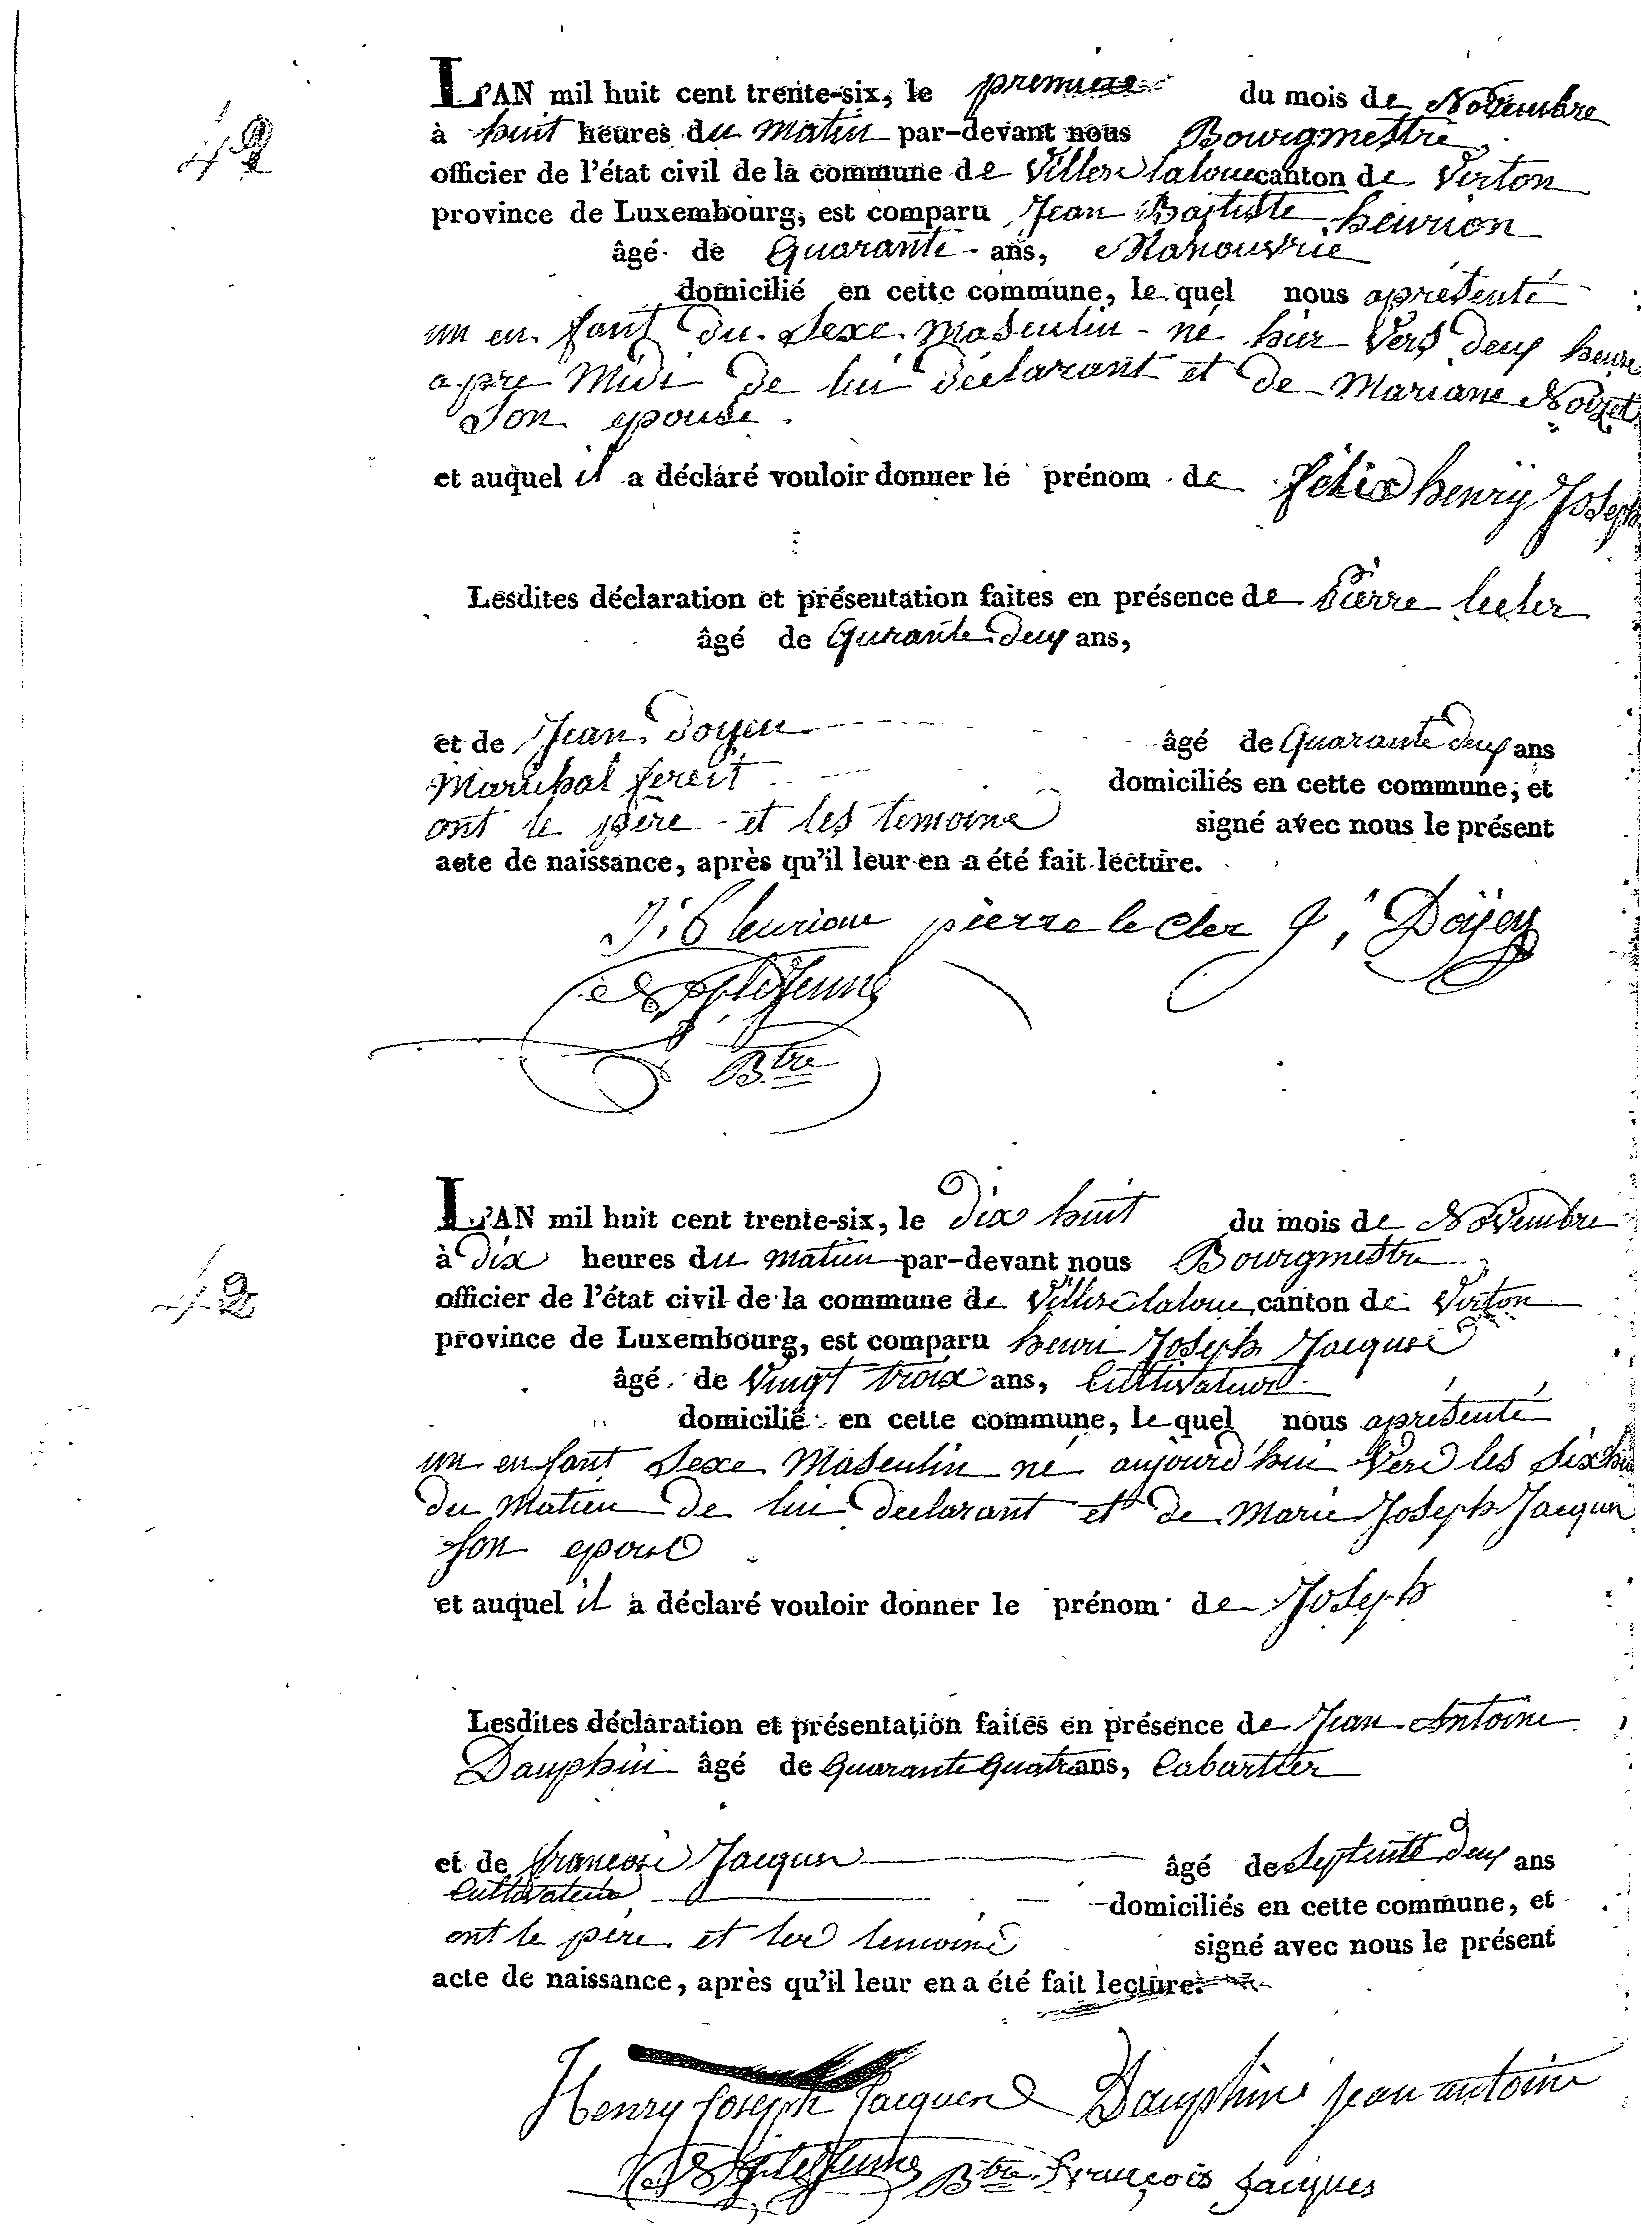 42
L'AN mil huit cent trente-six, le premiere du mois de Novembre
à huit heures du matin par-devant nous Bourgmestre
officier de l'état civil de la commune de Villers latoue canton de Virton
province de Luxembourg, est comparu Jean Baptiste henrion
âgé de Quarante ans, Manouvrie
domicilié en cette commune, le quel nous a présenté
un en fant du sexe masculin né hier vers deux heure
apre Midi de lui déclarant et de Mariane Noizet
Son epouse.
et auquel il a déclaré vouloir donner le prénom de félix henrÿ Joseph
Lesdites déclaration et présentation faites en présence de Pierre lecler
âgé de Qurante deux ans,
et de Jean doyen âgé de Quarante deux ans
Marichal fereit domiciliés en cette commune, et
ont le père et les temoins signé avec nous le présent
acte de naissance, après qu'il leur en a été fait lecture.
J. B henrion pierre le cler J. Doÿen
Btre
42
L'AN mil huit cent trente-six, le dix huit du mois de Novembre
à dix heures du matin par-devant nous Bourgmestre
officier de l'état civil de la commune de Villers latoue canton de Virton
province de Luxembourg, est comparu henri Joseph Jacques
âgé de vingt troix ans, Cultivateur
domicilié en cette commune, le quel nous a présenté
un enfant sexe Masculin né aujourd'hui vers les six
du Matin de lui declarant et de Marie Joseph Jacques
son epous
et auquel il a déclaré vouloir donner le prénom de Joseph
Lesdites déclaration et présentation faites en présence de Jean Antoine
Dauphin âgé de Quarante Quatre ans, Cabartier
et de françois Jacques âgé de Septente deux ans
Cultivateur domiciliés en cette commune, et
ont le père et les temoins signé avec nous le présent
acte de naissance, après qu'il leur en a été fait lecture.
Henry Joseph Jacques Dauphin jean antoine
Btre françois jacques